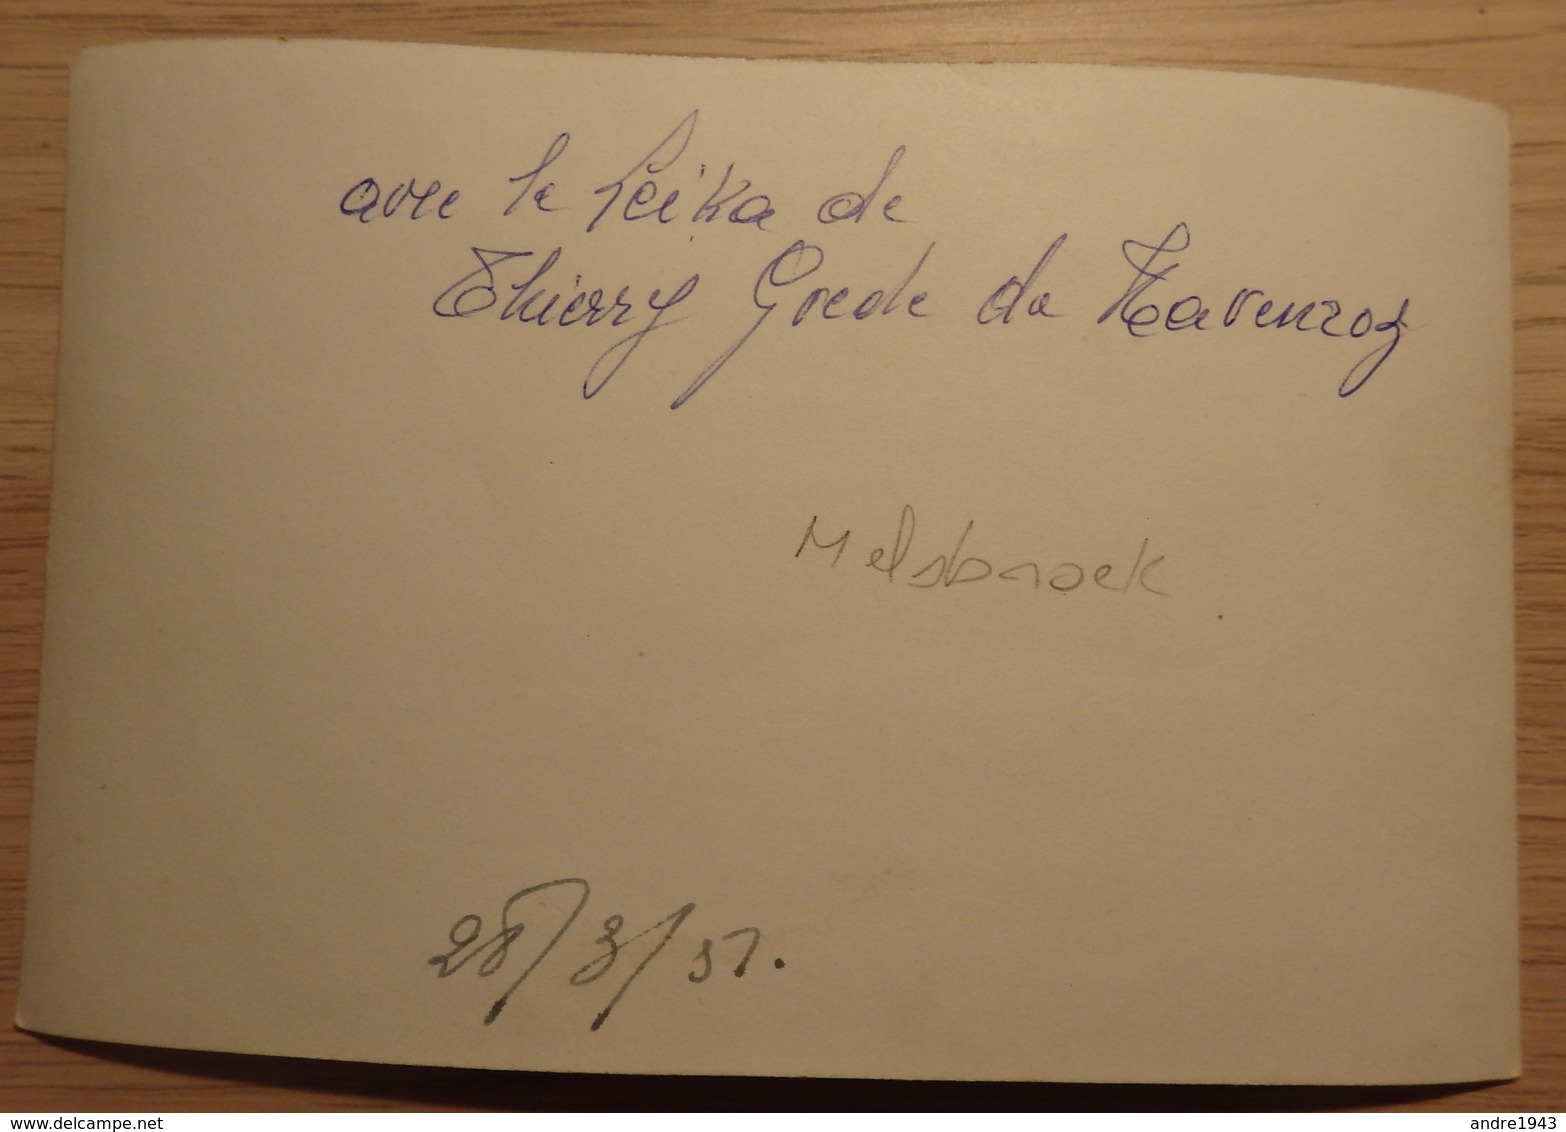 avec le Leika de
Thierry Grede de
Melsbroek
28/3/57.
delcampe.net
andre1943